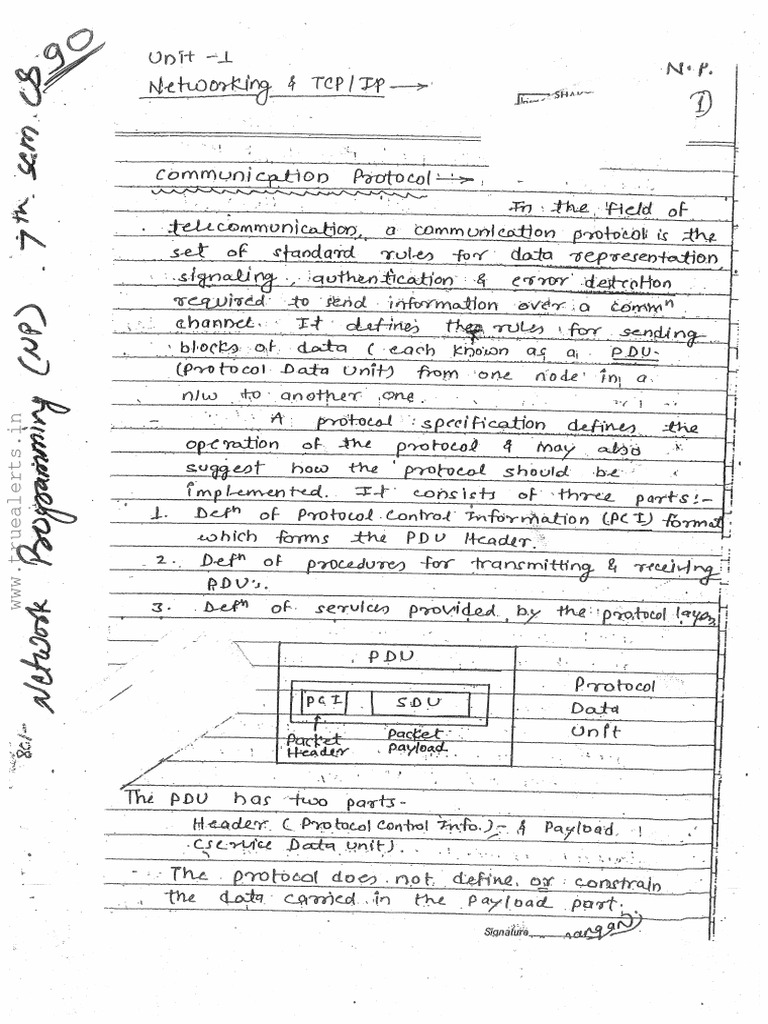 90
Unit - 1
N.P.
Networking & TCP/IP →
1
Communication Protocol :→
In the field of
telecommunication, a communication protocol is the
set of standard rules for data representation,
signaling, authentication & error detection
required to send information over a commⁿ
channel. It defines the rules for sending
blocks of data ( each known as a PDU.
(Protocol Data Unit) from one node in a
n/w to another one.
- A protocol specification defines the
operation of the protocol & may also
suggest how the protocol should be
implemented. It consists of three parts:-
1. Defⁿ of Protocol Control Information (PCI) format
which forms the PDU Header.
2. Defⁿ of procedures for transmitting & receiving
PDU's.
3. Defⁿ of services provided by the protocol layer
PDU
PCI SDU
Packet Header
Packet payload
Protocol
Data
Unit
The PDU has two parts-
Header ( Protocol Control Info.) - & Payload
(service Data Unit).
- The protocol does not define or constrain
the data carried in the payload part.
Signature
Network Programming (NP). 7th sem. CS
www.truealerts.in